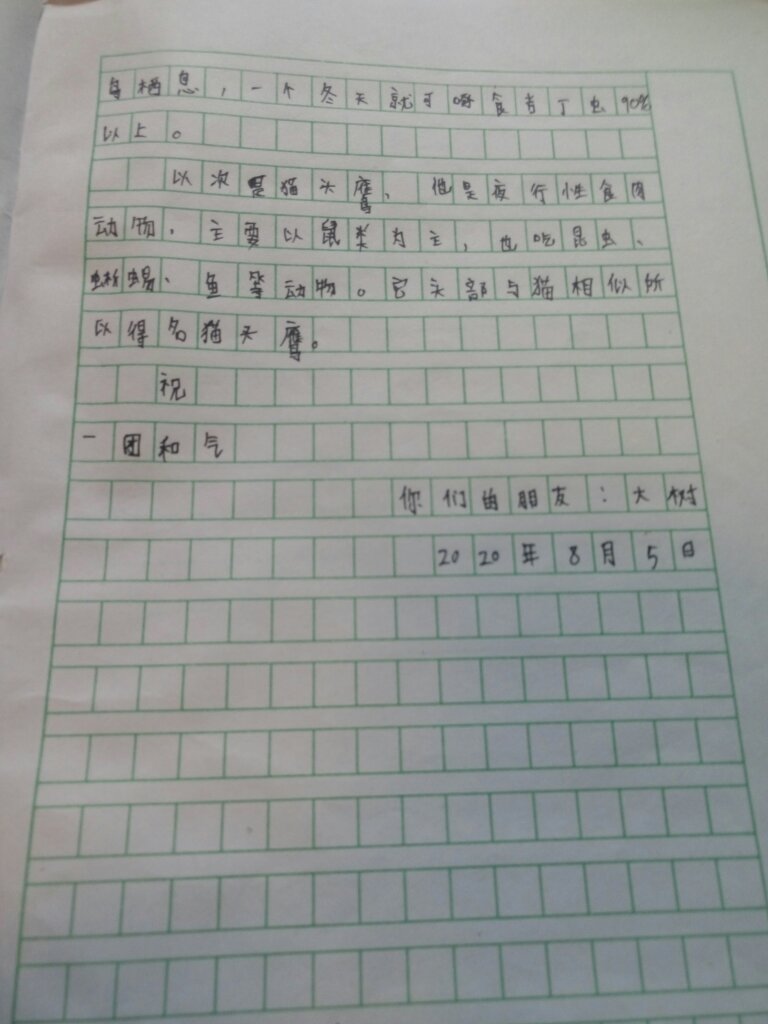 鸟栖息，一个冬天就可啄食吉丁虫90%
以上。
以次是猫头鹰，他是夜行性食肉
动物，主要以鼠类为主，也吃昆虫、
蜥蜴、鱼等动物。它头部与猫相似所
以得名猫头鹰。
祝
一团和气
你们的朋友：大树
2020年8月5日